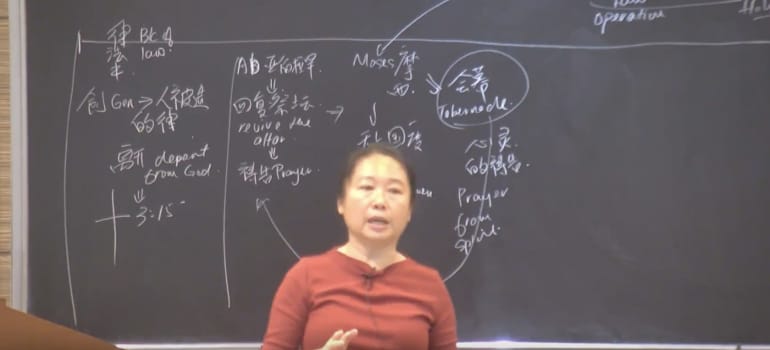 律 Bk of
法 law.
本
创 Gen → 人被造
的律
离开 depart
from God
3:15
AB 亚伯拉罕
回复祭坛
revive the
altar
祷告 Prayer
Moses 摩
西
会幕
Tabernacle
心灵
的祷告
Prayer
from
spirit
operation